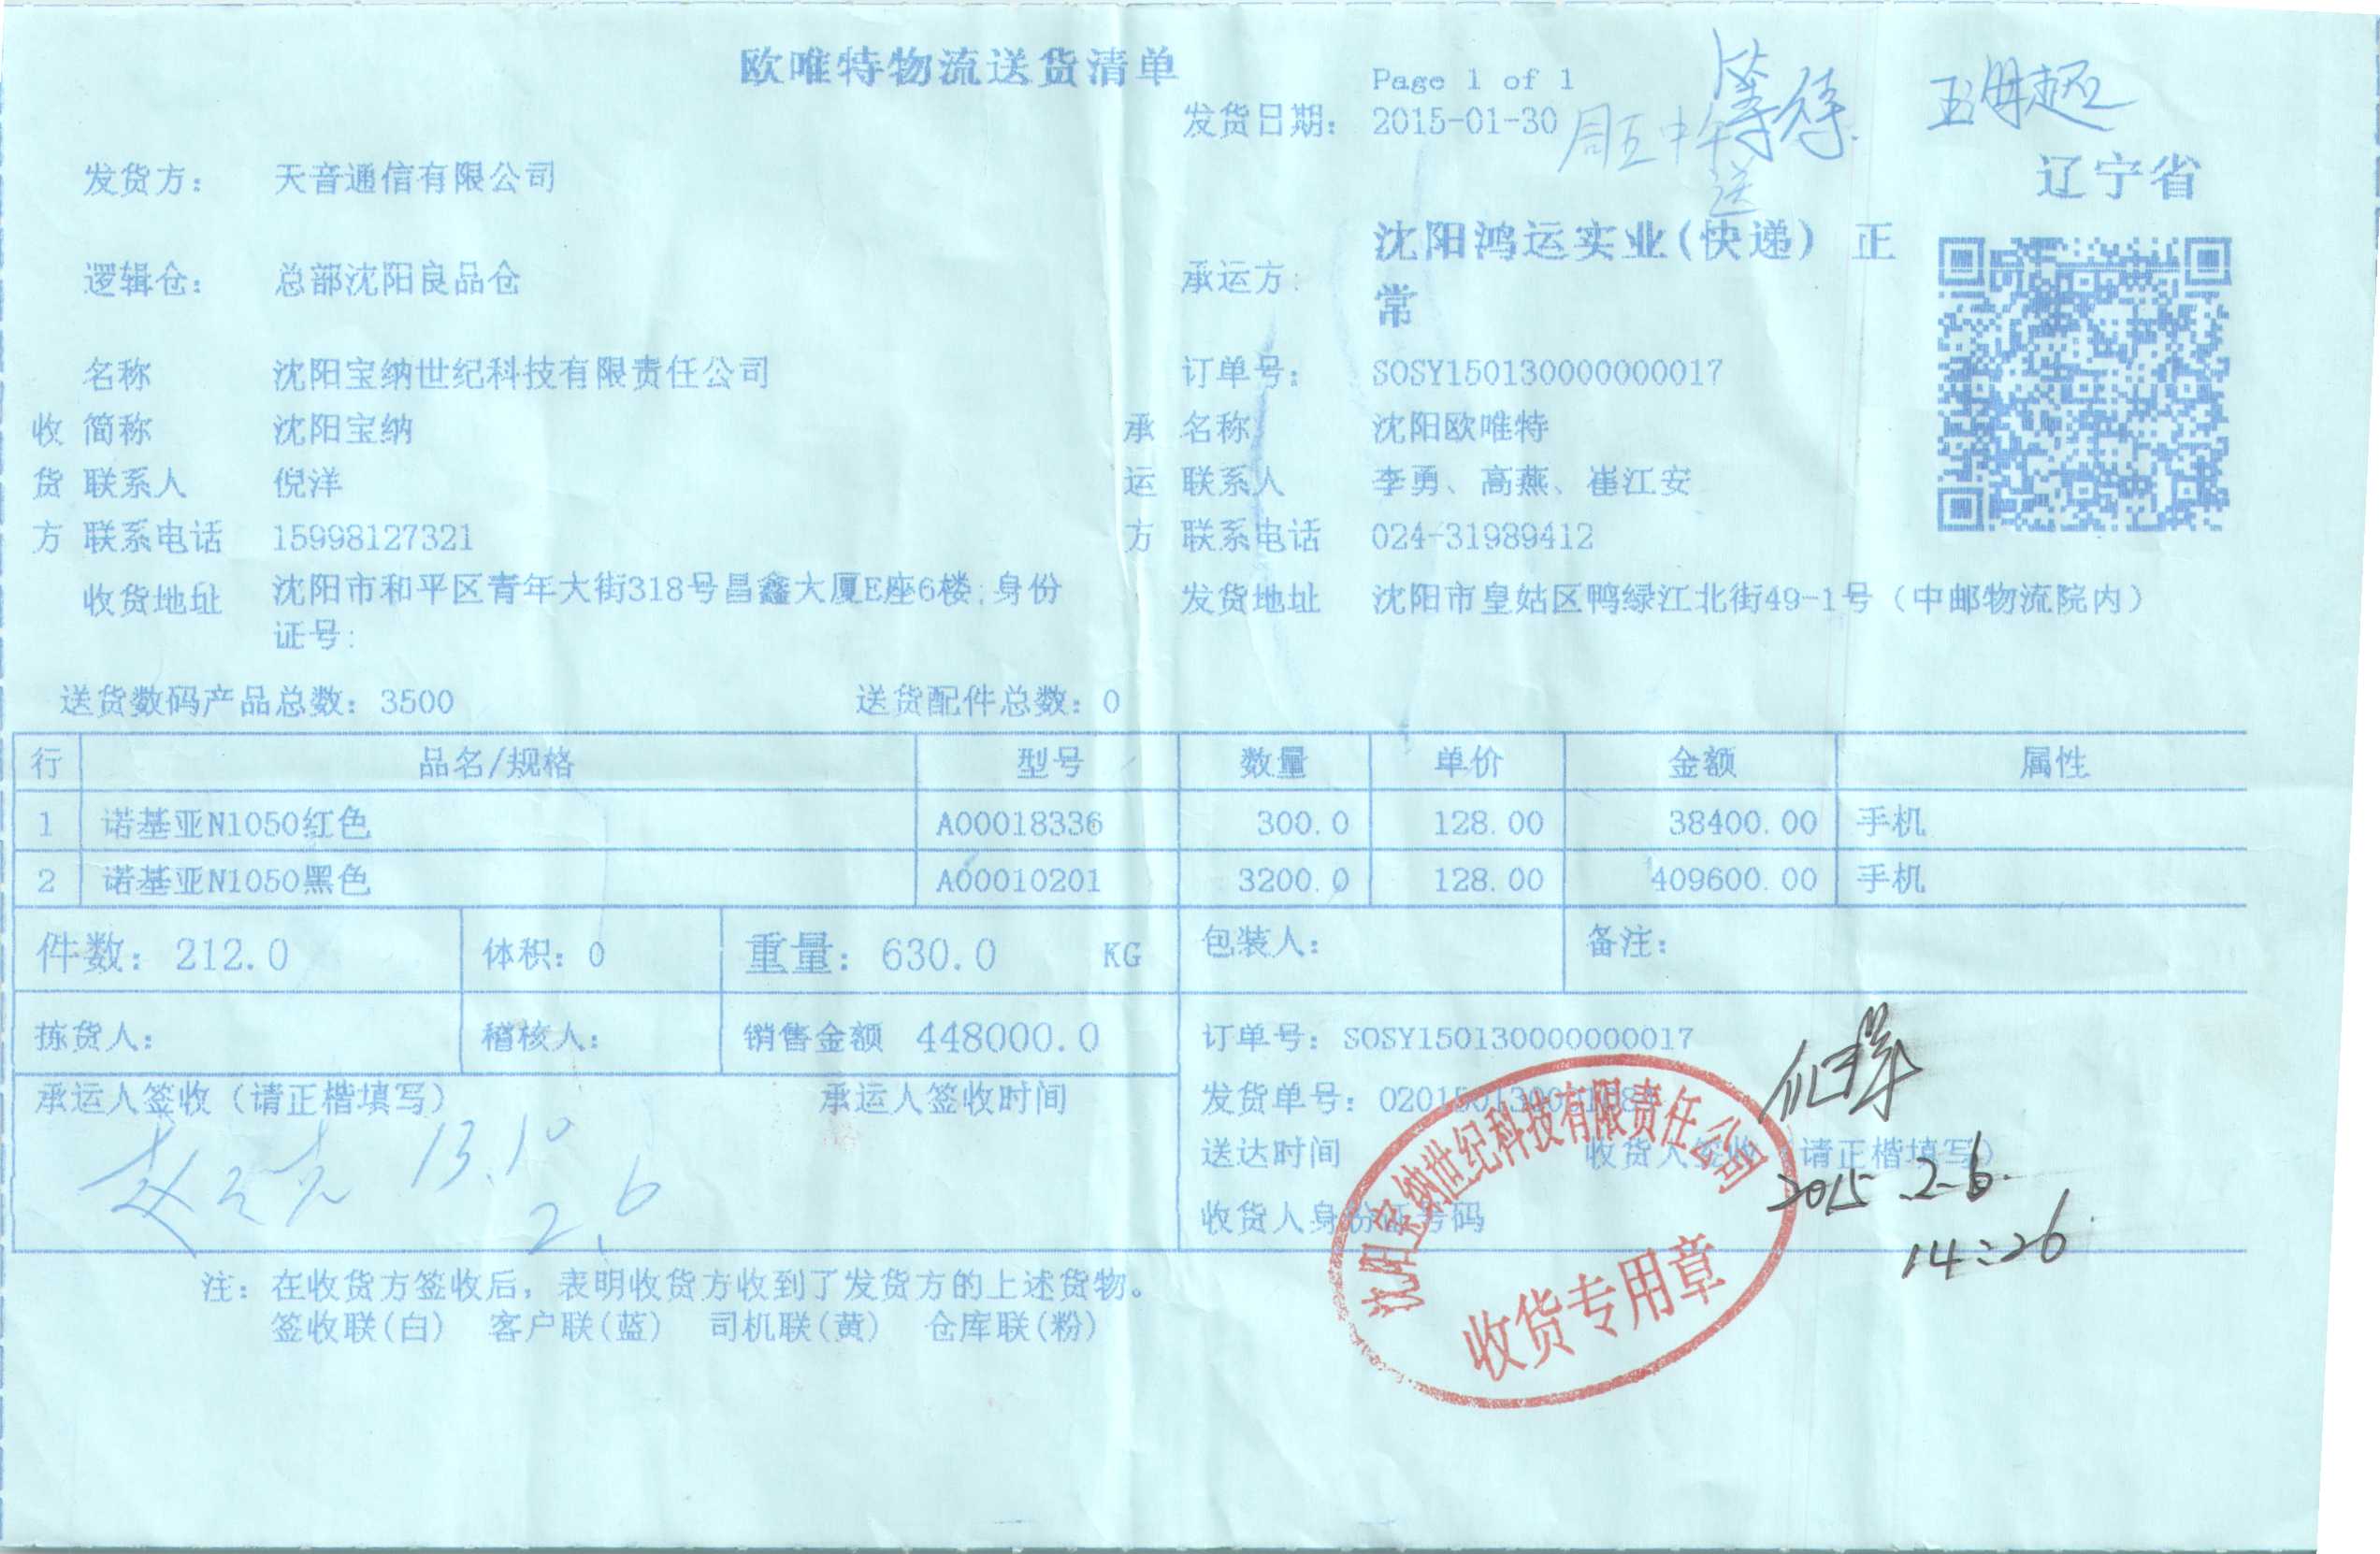 欧唯特物流送货清单
Page 1 of 1
等待
发货日期: 2015-01-30
周五中午
送
发货方: 天音通信有限公司
辽宁省
逻辑仓: 总部沈阳良品仓
承运方: 沈阳鸿运实业(快递) 正
常
名称 沈阳宝纳世纪科技有限责任公司
订单号: SOSY150130000000017
收 简称 沈阳宝纳
承 名称 沈阳欧唯特
货 联系人 倪洋
运 联系人 李勇、高燕、崔江安
方 联系电话 15998127321
方 联系电话 024-31989412
收货地址 沈阳市和平区青年大街318号昌鑫大厦E座6楼;身份
证号:
发货地址 沈阳市皇姑区鸭绿江北街49-1号（中邮物流院内）
送货数码产品总数: 3500 送货配件总数: 0
行 品名/规格 型号 数量 单价 金额 属性
1 诺基亚N1050红色 A00018336 300.0 128.00 38400.00 手机
2 诺基亚N1050黑色 A00010201 3200.0 128.00 409600.00 手机
件数: 212.0 体积: 0 重量: 630.0 KG 包装人: 备注:
拣货人: 稽核人: 销售金额 448000.0 订单号: SOSY150130000000017
承运人签收（请正楷填写） 承运人签收时间
13.10
2.6
发货单号:
送达时间 收货人签收（请正楷填写）
2015.2.6.
收货人身份证号码
14:26
沈阳宝纳世纪科技有限责任公司
收货专用章
注: 在收货方签收后, 表明收货方收到了发货方的上述货物。
签收联(白) 客户联(蓝) 司机联(黄) 仓库联(粉)